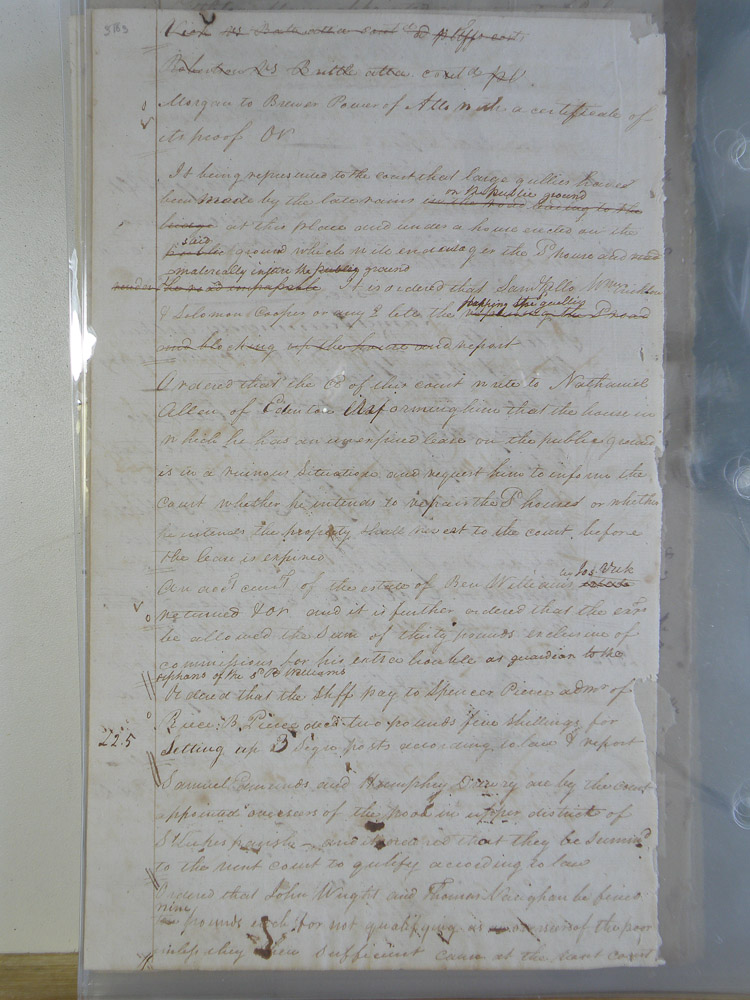 3163
Vick vs Bateatta cont'd pltffs costs
vs Brittle atta cont'd
Morgan to Brewer Power of Atto with a certificate of
its proof OR
It being represented to the court that large gullies have
been made by the late rains in the road leading to the
on the public ground
bridge at this place and under a house erected on the
said
public ground which will endanger the sd house and
materially injure the public ground
the road impassable It is ordered that Saml Kello Wm
& Solomon Cooper or any 2 let the
stopping the gullies
on the sd road
and blocking up the and report
Ordered that the Ck of this court write to Nathaniel
Allen of Edenton informing him that the house in
which he has an unexpired lease on the public ground
is in a ruinous situation and request him to inform the
court whether he intends to repair the sd houses or whether
he intends the property shall revest to the court before
the lease is expired
An acct currt of the estate of Ben Williams
Jos. Vick
returned & OR and it is further ordered that the exr
be allowed the Sum of thirty pounds inclusive of
commissions for his extra trouble as guardian to the
orphans of the sd B Williams
Ordered that the Shff pay to Spencer Pierce admr of
Rice B. Pierce decd two pounds five shillings for
225
Setting up 3 Sign posts according to law & report
Samuel Edmunds and Humphrey Drury are by the court
appointed overseers of the poor in upper district of
St Lukes parish and ordered that they be summd
to the next court to qulify according to law
Ordered that John Wright and Thomas Vaughan be fined
nine
pounds each for not qualifying as overseers of the poor
unless they shew sufficient cause at the next court